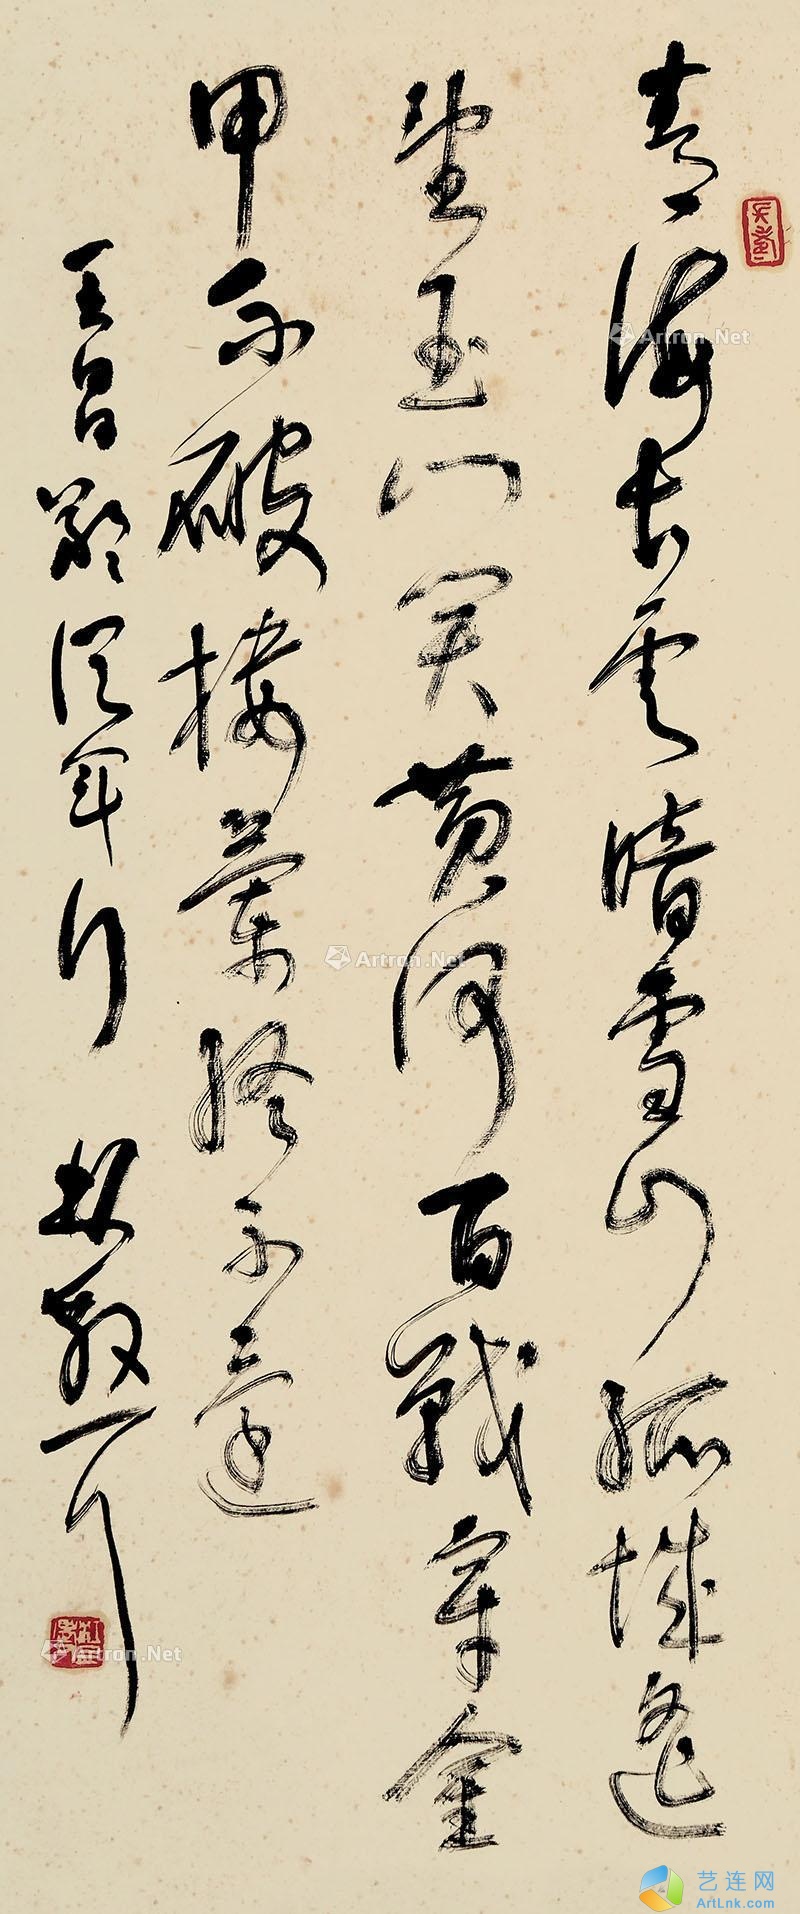 青海長雲暗雪山孤城遥
望玉門關黄河百戰穿金
甲不破樓蘭終不還
王昌齡從軍行 林散耳
Artron.Net
Artron.Net
Artron.Net
艺连网
ArtLnk.com